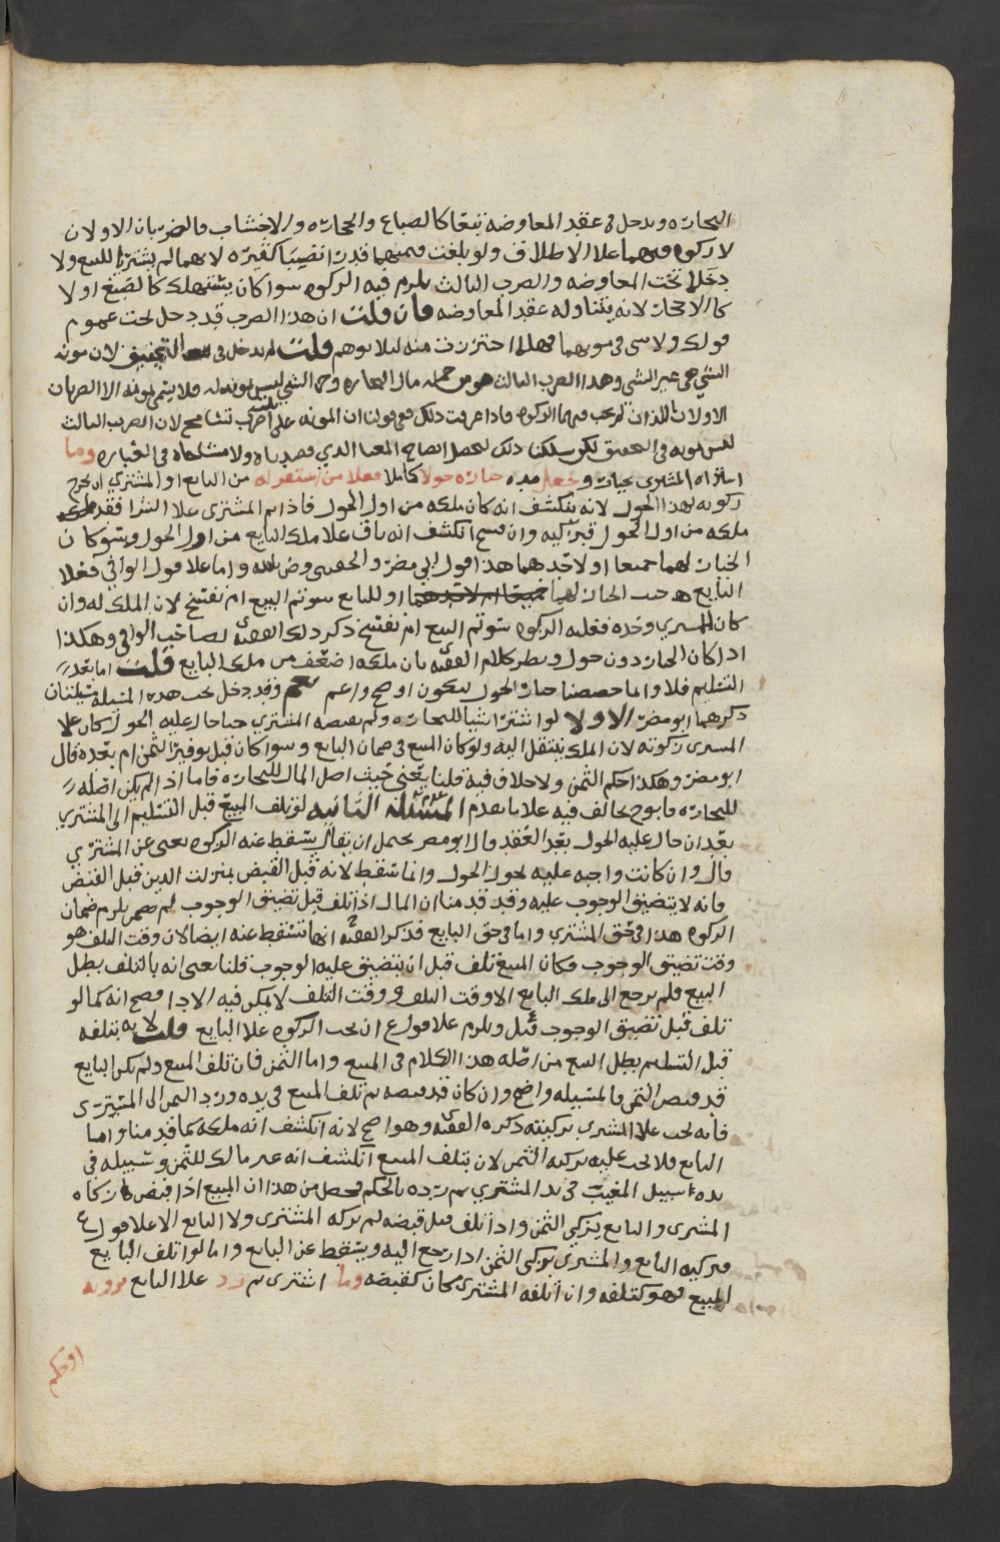 التجارة ويدخل في عقد المعاوضة تبعا كالصباغ والحجارة والاخشاب فالضربان الاولان
لا زكوة فيهما علا الاطلاق ولو بلغت قيمتهما قدر انصبا كثيرة لانهما لم يشتريا للبيع ولا
دخلا تحت المعاوضة والضرب الثالث يلزم فيه الزكوة سوا كان يستهلك كالصبغ او لا
كالاحجار لانه يتناوله عقد المعاوضة فان قلت ان هذا الضرب قد دخل تحت عموم
قولك ولا شي في مونهما فهلا احترزت منه ليلا يوهم قلت لم يدخل في التحقيق لان مونه
الشي هي غير الشي وهذا الضرب الثالث هو من جملة مال التجارة وحق الشي ليس مونه له فلا يسمى مونه الا الضربان
الاولان اللذان لم تجب فيهما الزكوة فاذا عرفت ذلك ففي قولنا ان المونه على اضرب ثلثة تسامح لان الضرب الثالث
ليس مونه في التحقيق لكن سلكنا ذلك لقصد ايضاح المعنا الذي قصدناه ولا مشاحاه في العباره وما
اشتراه المشتري بخيار وجعل مده خياره حولا كاملا فعلا من استقر له من البايع او المشتري ان يخرج
زكوته لهذا الحول لانه ينكشف انه كان ملكه من اول الحول فاذا تم المشترى علا الشرا فقد ملكه
ملكه من اول الحول فيزكيه وان فسخ انكشف انه باق علا ملك البايع من اول الحول وسوى كان
الخيار لهما جميعا او لاحدهما هذا قول ابي مضر والحقيني وض بلده واما علا قول الوافي فعلا
البايع حيث الخيار لهما او للبايع سو تم البيع ام نفسخ لان الملك له وان
كان للمشتري وحده فعليه الزكوة سو تم البيع ام نفسخ ذكر ذلك الفقيه لصاحب الوافي وهكذا
اذا كان الخيار دون حول ونظر كلام الفقيه بان ملكه اضعف من ملك البايع قلت اما بعد
التسليم فلا وانما خصصنا خيار الحول ليكون اوضح واعم وقد دخل تحت هذه المسئلة مسئلتان
ذكرهما ابو مضر الاولا لو اشترا شيا للتجارة ولم يقبضه المشتري حتا حال عليه الحول كان علا
المشترى زكوته لان الملك ينتقل اليه ولو كان المبيع في ضمان البايع وسوا كان قبل توفير الثمن ام بعده قال
ابو مضر وهكذا حكم الثمن ولا خلاف فيه قلنا يعني حيث اصل المال للتجارة فاما اذا لم يكن اصله
للتجارة فابوح يخالف فيه علا ما تقدم المسئلة الثانيه لو تلف المبيع قبل التسليم الى المشتري
بعد ان حال عليه الحول بعد العقد قال ابو مضر يحتمل ان يقال يسقط عنه الزكوة يعني عن المشتري
قال وان كانت واجبه عليه لحول الحول وانما تسقط لانه قبل القبض بمنزلت الدين قبل القبض
فانه لا يتضيق الوجوب عليه وقد قدمنا ان المال اذا تلف قبل تضيق الوجوب لم يلزم ضمان
الزكوة هذا في حق المشتري واما في حق البايع فذكر الفقيه انها تسقط عنه ايضا لان وقت التلف هو
وقت تضيق الوجوب فكان المبيع تلف قبل ان يتضيق عليه الوجوب قلنا يعني انه بالتلف بطل
البيع فلم يرجع الى ملك البايع الا وقت التلف ووقت التلف لا يمكن فيه الادا فصح انه كما لو
تلف قبل تضيق الوجوب قيل ويلزم علا قول ع ان تجب الزكوة علا البايع قلت لانه بتلفه
قبل التسليم بطل البيع من اصله هذا الكلام في المبيع واما الثمن فان تلف المبيع ولم يكن البايع
قد قبض الثمن فالمسئله واضح وان كان قد قبضه ثم تلف المبيع في يده ورد الثمن الى المشترى
فانه يجب علا المشترى تزكيته ذكره الفقيه وهو اضح لانه انكشف انه ملكه كما قدمنا واما
البايع فلا يجب عليه تزكيه الثمن لان بتلف المبيع انكشف انه غير مالك للثمن وسبيله في
يده سبيل المغيب في يد المشتري ثم رده بالحكم فحصل من هذا ان المبيع اذا قبض زكاه
المشترى والبايع يزكي الثمن واذا تلف قبل قبضه لم يزكه المشترى ولا البايع الا علا قول ع
فيزكيه البايع والمشترى يزكى الثمن اذا رجع اليه ويسقط عن البايع واما لو اتلف البايع
المبيع فهو كتلفه وان اتلفه المشترى كان كقبضه وما اشترى ثم رد علا البايع برويه
او حكم